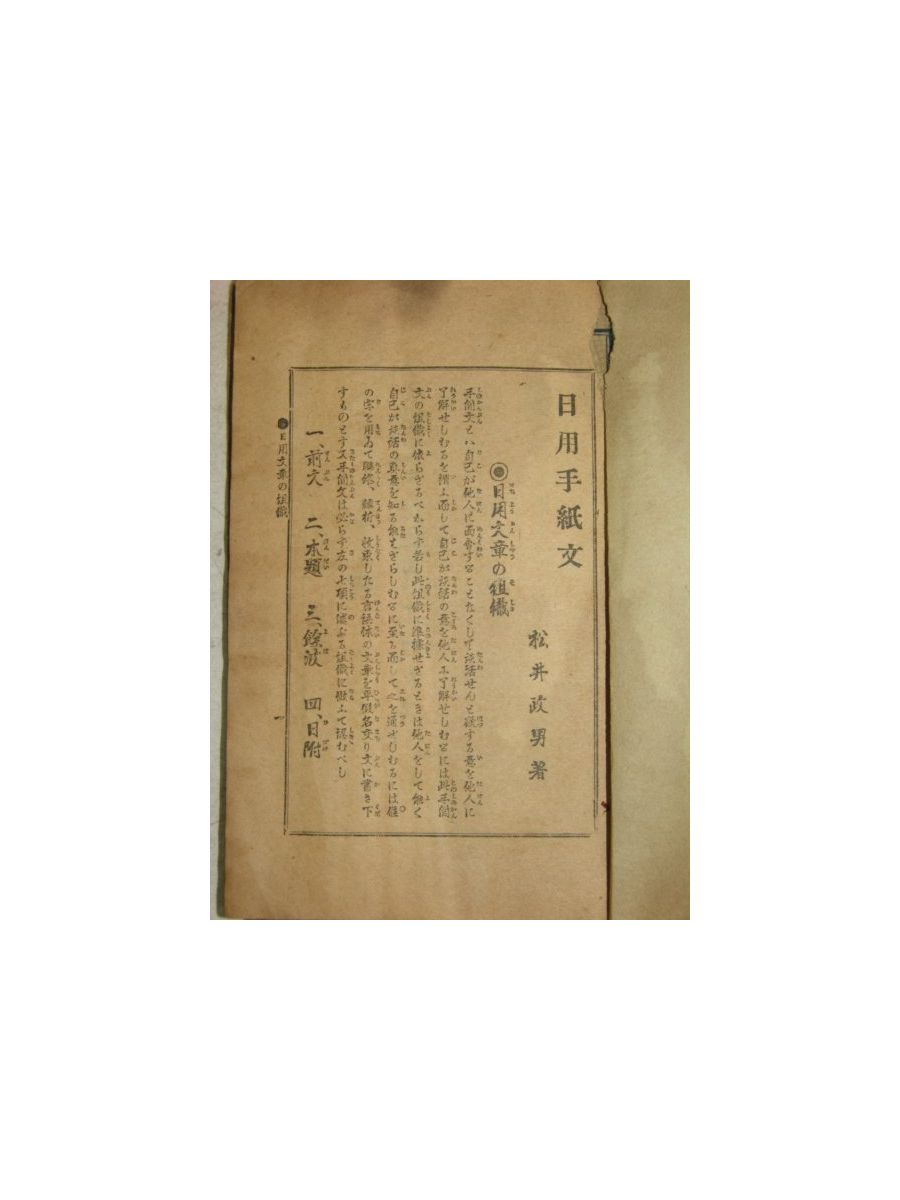 日用手紙文
松井政男著
◉日用文章の組織
手簡文とハ自己が他人に面會することなくして談話せんと欲する意を他人に
了解せしむるを謂ふ而して自己が談話の意を他人に了解せしむるには此手簡
文の組織に依らざるべからず若し此組織に準據せざるときは他人をして能く
自己が談話の眞意を知る能はざらしむるに至る而して之を通ぜしむるには候
の字を用ゐて聯絡、轉折、收束したる言語体の文章を平假名交り文に書き下
すものとす又手簡文は必らず左の七項に述ぶる組織に傚ふて認むべし
一、前文 二、本題 三、餘波 四、日附
日用文章の組織
一